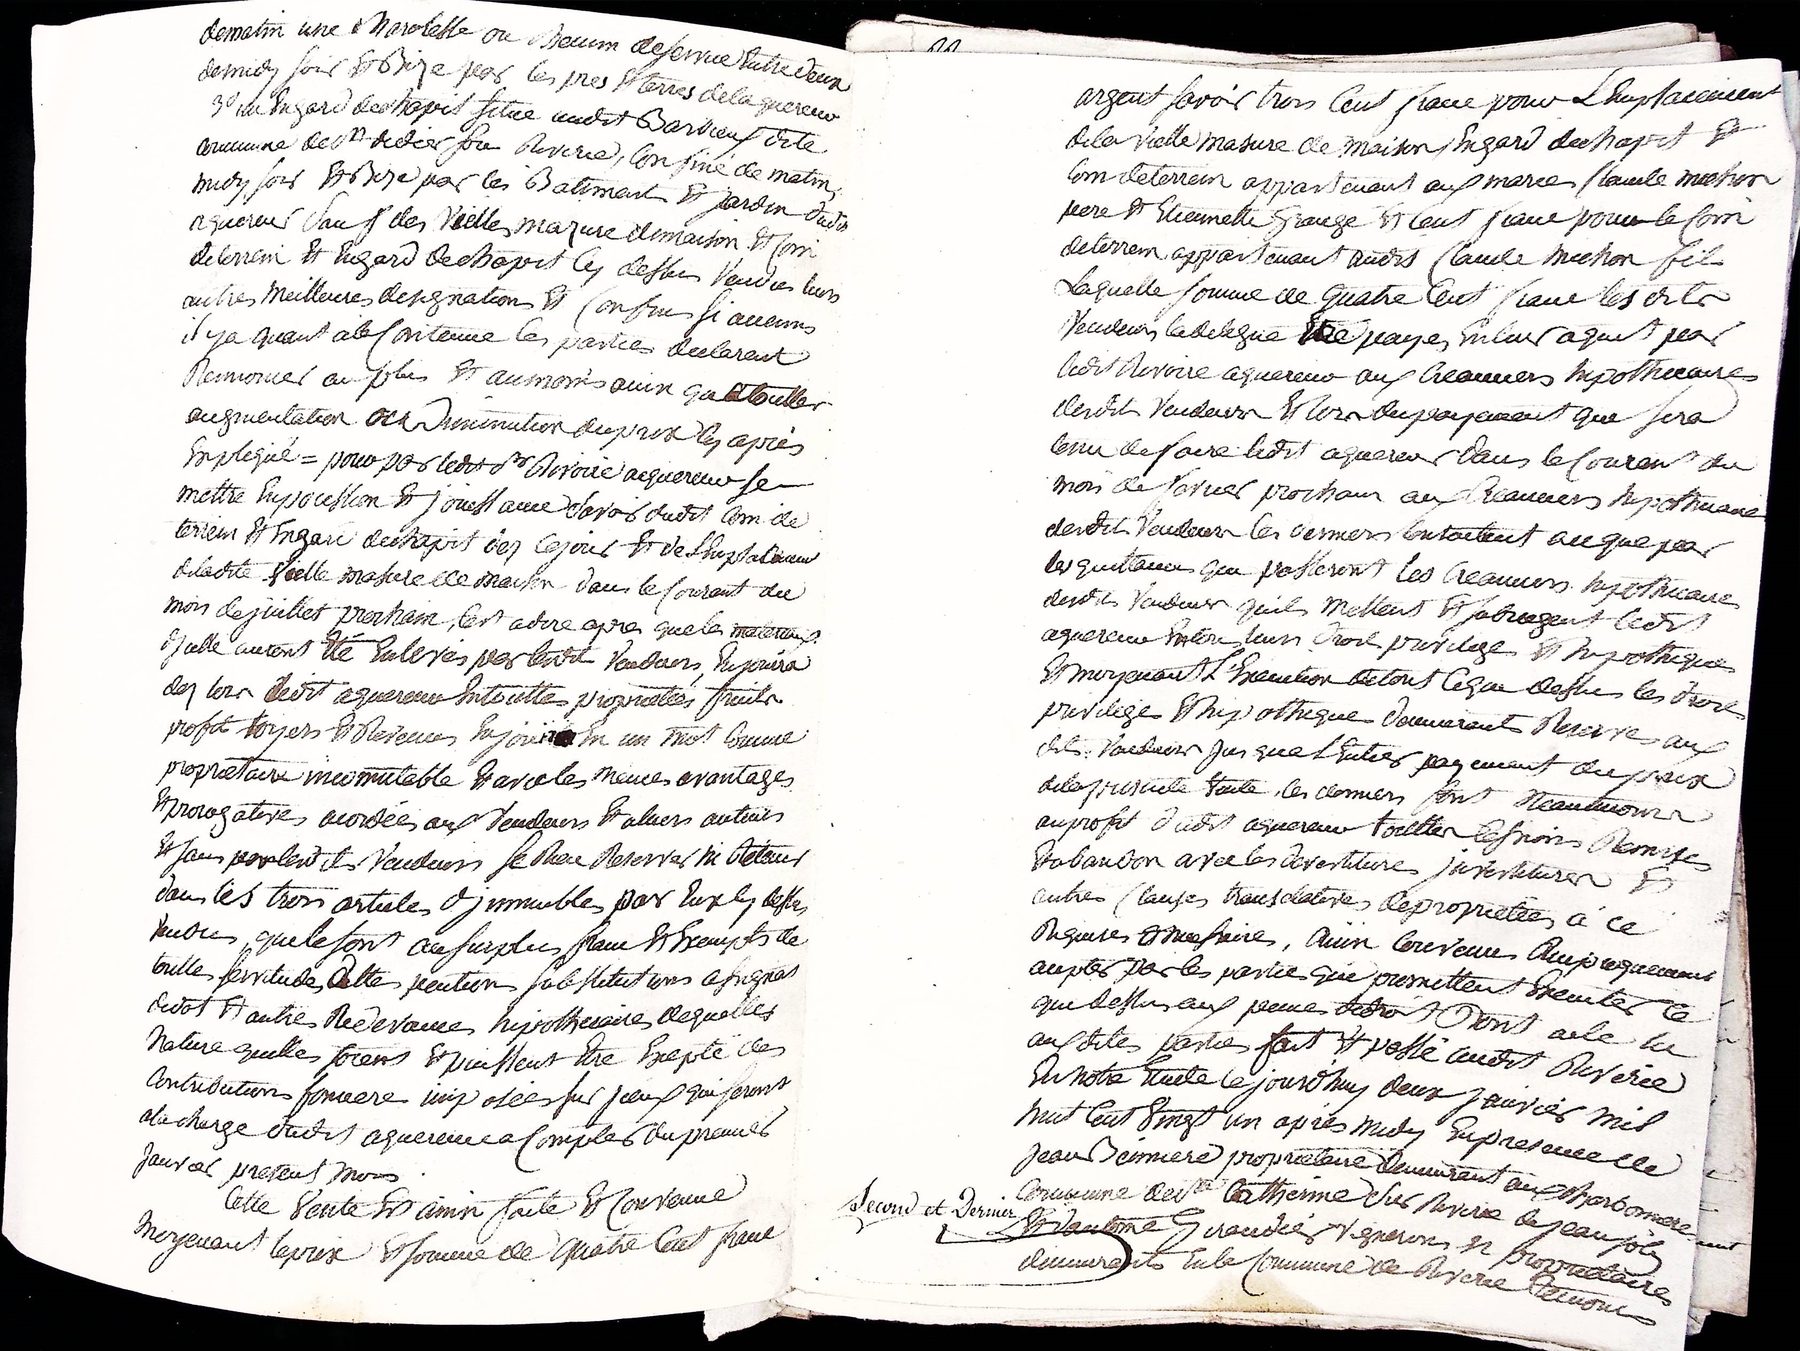 dematin une charolesse ou chemin deservie Entre deux
demidy soir Et Bize par les pres Et terres delaquereur
3º un Engard dechapit situe audit Barbieux dite
commune de st didier sou Riverie, Confiné de matin,
midy soir Et Bize par les Batiment Et jardin dudit
aquereur Sauf des Vielles mazure demaison Et Coin
deterrein Et Engard dechapit Cy dessus Vendues leurs
autres Meilleures designations Et Confins si aucuns
il ya quant ala Contenue les parties declarent
Renoncer au plus Et aumoins ainsi qua toutte
augmentation ou Diminution duprix Cy après
Expliqué = pour par ledit sr Rivoire aquereur se
mettre Enpocession Et jouissance Savoir dudit Coin de
terrein Et Engard dechapit dez cejour Et de L'Emplacement
deladite Vielle masure de maison dans le Courant du
mois dejuillet prochain, C'est adire apres que les materiaux
d'jcelle auront Eté Enlevés par lesdit Vendeurs, Enjouira
dez lors ledit aquereur Entoutte proprietés fruits
profit loyers Et Revenus Enjouira En un mot Comme
propriétaire incomutable Et avec les memes avantages
Et prerogatives acordées aux Vendeurs Et aleurs auteurs
Et sans par lesdits Vendeurs se Rien Reserver ni Retenir
dans les trois articles d'jmmeubles par Eux Cy dessus
Vendus, quils font au surplus franc Et Exempts de
toutte servitudes, Dette pention substitutions asignat
dedot Et autres Redevances hipothecaires dequelles
Nature quelles soient Et puissent Etre Excepté des
Contributions fonciere imposées sur jceux qui seront
ala charge dudit aquereur a Compter du premier
Janvier present mois
Cette Vente Est ainsi faite Et Convenue
Moyenant leprix Et somme de Quatre Cent franc
argent savoir trois Cent franc pour L'Emplacement
dela Vielle masure de maison, Engard dechapit Et
Coin deterrein appartenant aux maries Claude michon
pere Et Etiennette Grange Et Cent franc pour le Coin
deterrein appartenant audit Claude michon fils
Laquelle somme de Quatre Cent franc les dits
Vendeurs ladelegue Etre payes Enleur aquit par
ledit Rivoire aquereur aux Creanciers hipothecaires
desdits Vendeurs Et lors dupayement que sera
tenu de faire ledit aquereur dans le Courant du
mois de fevrier prochain aux Creanciers hipothecaires
desdits Vendeurs les derniers Consentent ace que par
les quittances que passeront les Creanciers hipothecaires
desdits Vendeurs qu'ils Mettent Et subrogent ledit
aquereur Entous leurs Droit privilege Et hipothèque
Et moyenant L'Execution detout Ceque dessus les Droit
privilege Et hipothèque demeurant Reservés aux
dits Vendeurs jusque L'Entier payement du prix
delapresente Vente, les derniers font Neanmoins
auprofit dudit aquereur toutte Cessions Remises
Et abandon avec les devestitures jnvestitures Et
autres Clauses translatives de propriétées à ce
Requises Et necessaire, Ainsi Convenu Reciproquement
accepter par les parties qui promettent Executer Ce
que dessus aux peines dedroit Dont acte lu
aux dites parties fait Et passé audit Riverie
En notre Etude le jourdhuy deux janvier mil
huit Cent Vingt un après midy Enpresence de
Jean propriétaire demeurant aux
Commune de ste Catherine Sur Riverie de jean joly
Second et Dernier
Et Antoine Giraudier vignerons Et propriétaires
demeurants En la Commune de Riverie temoins